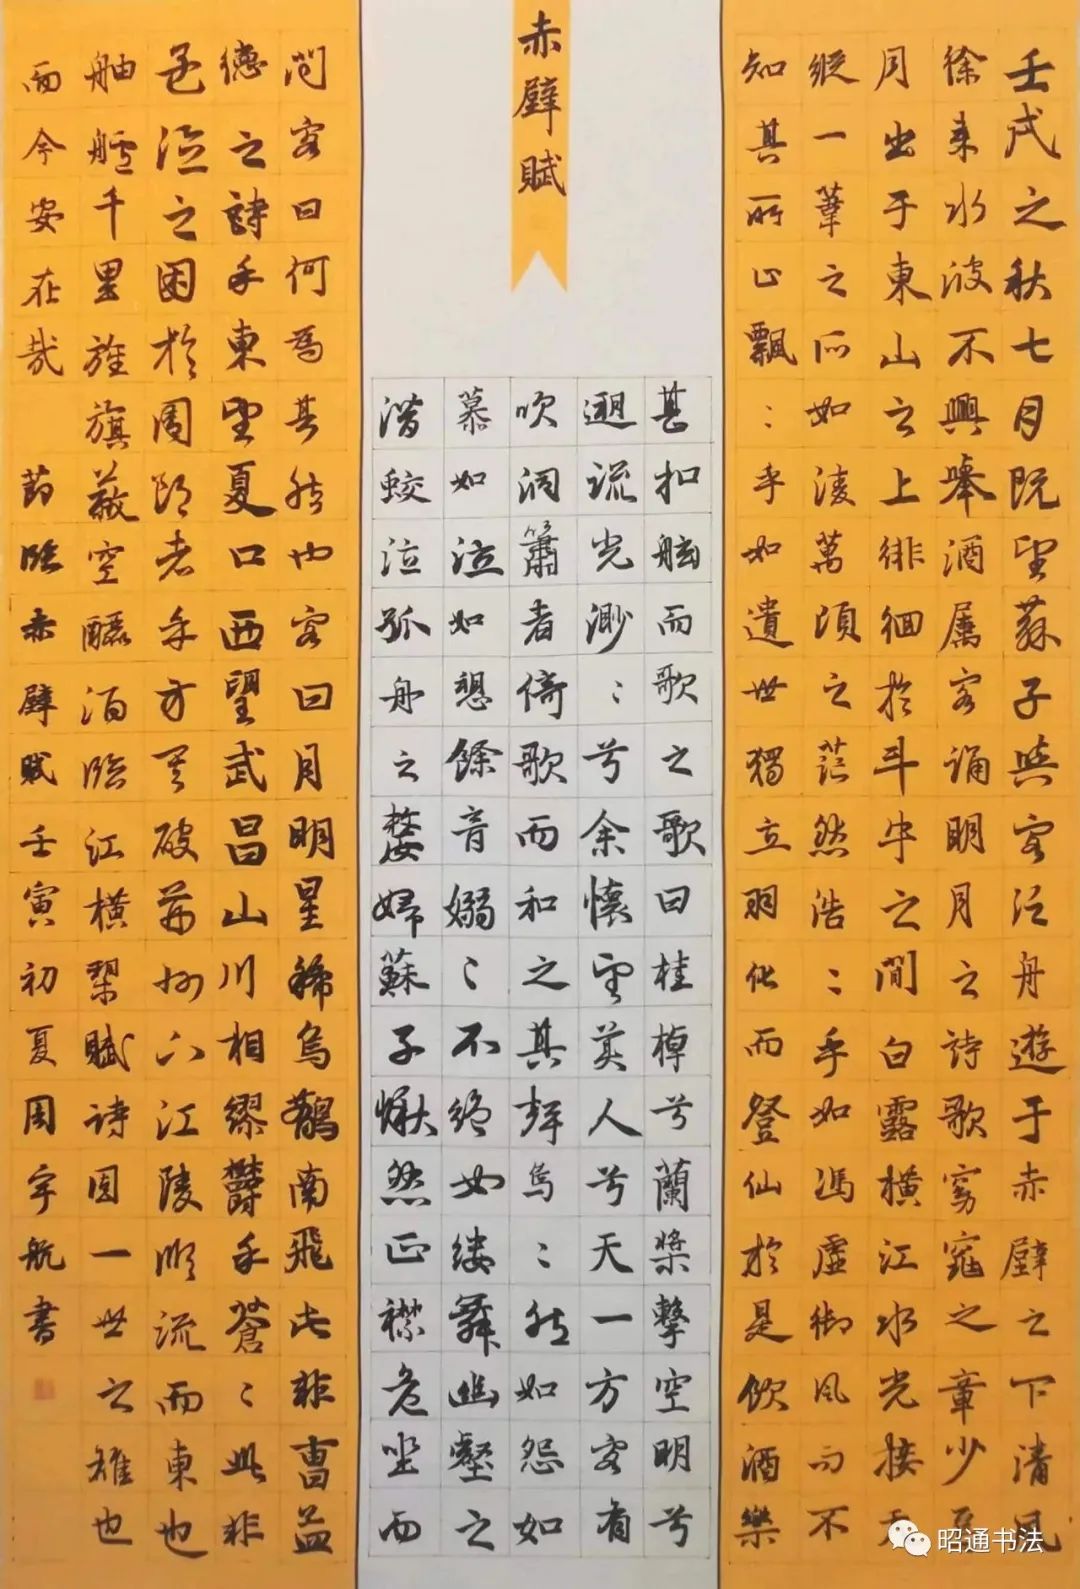 赤壁賦
壬戌之秋七月既望蘇子與客泛舟遊于赤壁之下清風
徐来水波不興舉酒屬客誦明月之詩歌窈窕之章少焉
月出于東山之上徘徊於斗牛之間白露橫江水光接天
縱一葦之所如凌萬頃之茫然浩〻乎如馮虛御風而不
知其所止飄〻乎如遺世獨立羽化而登仙於是飲酒樂
甚扣舷而歌之歌曰桂棹兮蘭槳擊空明兮
遡流光渺〻兮余懷望美人兮天一方客有
吹洞簫者倚歌而和之其聲烏〻然如怨如
慕如泣如愬餘音嫋〻不絕如縷舞幽壑之
潛蛟泣孤舟之嫠婦蘇子愀然正襟危坐而
问客曰何為其然也客曰月明星稀烏鵲南飛此非曹孟
德之詩乎東望夏口西望武昌山川相繆鬱乎蒼〻此非
孟德之困於周郎者乎方其破荆州下江陵順流而東也
舳艫千里旌旗蔽空釃酒臨江橫槊賦詩固一世之雄也
而今安在哉
節臨赤壁賦壬寅初夏周宇航書
昭通书法